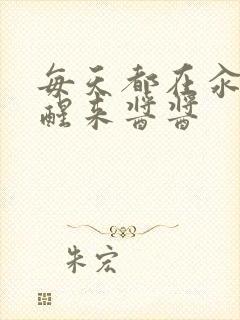 每天都在汆
醒来酱酱
朱宏